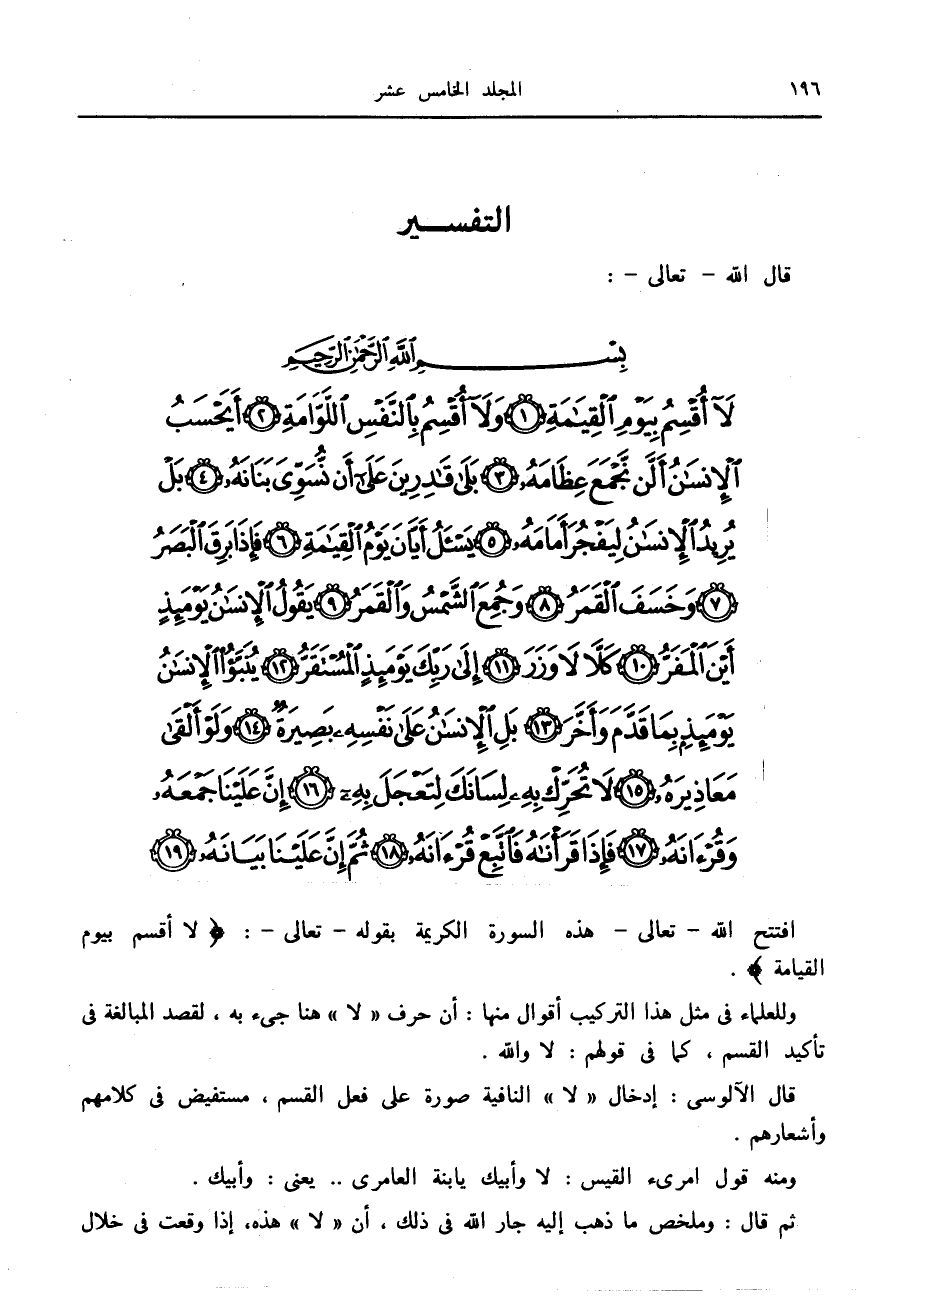 ١٩٦ المجلد الخامس عشر
التفسـير
قال الله – تعالى – :
بِسْـــمِ ٱللَّهِ ٱلرَّحْمَٰنِ ٱلرَّحِيمِ
لَآ أُقْسِمُ بِيَوْمِ ٱلْقِيَٰمَةِ ١ وَلَآ أُقْسِمُ بِٱلنَّفْسِ ٱللَّوَّامَةِ ٢ أَيَحْسَبُ
ٱلْإِنسَٰنُ أَلَّن نَّجْمَعَ عِظَامَهُۥ ٣ بَلَىٰ قَٰدِرِينَ عَلَىٰٓ أَن نُّسَوِّىَ بَنَانَهُۥ ٤ بَلْ
يُرِيدُ ٱلْإِنسَٰنُ لِيَفْجُرَ أَمَامَهُۥ ٥ يَسْـَٔلُ أَيَّانَ يَوْمُ ٱلْقِيَٰمَةِ ٦ فَإِذَا بَرِقَ ٱلْبَصَرُ
٧ وَخَسَفَ ٱلْقَمَرُ ٨ وَجُمِعَ ٱلشَّمْسُ وَٱلْقَمَرُ ٩ يَقُولُ ٱلْإِنسَٰنُ يَوْمَئِذٍ
أَيْنَ ٱلْمَفَرُّ ١٠ كَلَّا لَا وَزَرَ ١١ إِلَىٰ رَبِّكَ يَوْمَئِذٍ ٱلْمُسْتَقَرُّ ١٢ يُنَبَّؤُا۟ ٱلْإِنسَٰنُ
يَوْمَئِذٍۭ بِمَا قَدَّمَ وَأَخَّرَ ١٣ بَلِ ٱلْإِنسَٰنُ عَلَىٰ نَفْسِهِۦ بَصِيرَةٌ ١٤ وَلَوْ أَلْقَىٰ
مَعَاذِيرَهُۥ ١٥ لَا تُحَرِّكْ بِهِۦ لِسَانَكَ لِتَعْجَلَ بِهِۦٓ ١٦ إِنَّ عَلَيْنَا جَمْعَهُۥ
وَقُرْءَانَهُۥ ١٧ فَإِذَا قَرَأْنَٰهُ فَٱتَّبِعْ قُرْءَانَهُۥ ١٨ ثُمَّ إِنَّ عَلَيْنَا بَيَانَهُۥ ١٩
افتتح الله – تعالى – هذه السورة الكريمة بقوله – تعالى – : ﴿ لا أقسم بيوم
القيامة ﴾ .
وللعلماء فى مثل هذا التركيب أقوال منها : أن حرف « لا » هنا جىء به ، لقصد المبالغة فى
تأكيد القسم ، كما فى قولهم : لا والله .
قال الآلوسى : إدخال « لا » النافية صورة على فعل القسم ، مستفيض فى كلامهم
وأشعارهم .
ومنه قول امرىء القيس : لا وأبيك يابنة العامرى .. يعنى : وأبيك .
ثم قال : وملخص ما ذهب إليه جار الله فى ذلك ، أن « لا » هذه، إذا وقعت فى خلال